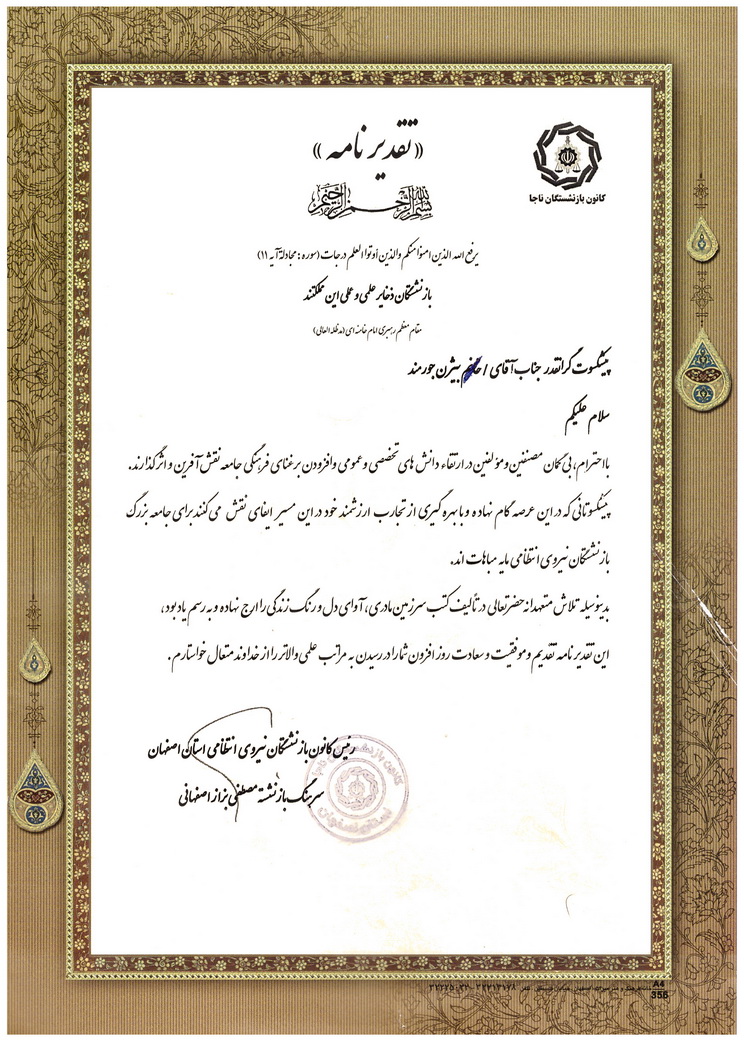 کانون بازنشستگان ناجا
«تقدیر نامه»
بسم الله الرحمن الرحیم
یرفع الله الذین امنوا منکم والذین أوتوا العلم درجات (سوره: مجادله آیه ۱۱)
بازنشستگان ذخایر علمی و عملی این مملکتند
مقام معظم رهبری امام خامنه ای (مدظله العالی)
پیشکسوت گرانقدر جناب آقای / خانم بیژن جورمند
سلام علیکم
با احترام، بی گمان مصنفین و مؤلفین در ارتقاء دانش های تخصصی و عمومی و افزودن بر غنای فرهنگی جامعه نقش آفرین و اثرگذارند.
پیشکسوتانی که در این عرصه گام نهاده و با بهره گیری از تجارب ارزشمند خود در این مسیر ایفای نقش می کنند برای جامعه بزرگ
بازنشستگان نیروی انتظامی مایه مباهات اند.
بدینوسیله تلاش متعهدانه حضرتعالی در تألیف کتب سرزمین مادری، آوای دل و رنگ زندگی را ارج نهاده و به رسم یاد بود،
این تقدیر نامه تقدیم و موفقیت و سعادت روز افزون شما را در رسیدن به مراتب علمی والاتر را از خداوند متعال خواستارم.
رئیس کانون بازنشستگان نیروی انتظامی استان اصفهان
سرهنگ بازنشسته مصطفی بزاز اصفهانی
کانون بازنشستگان ناجا
استان اصفهان
A4
355